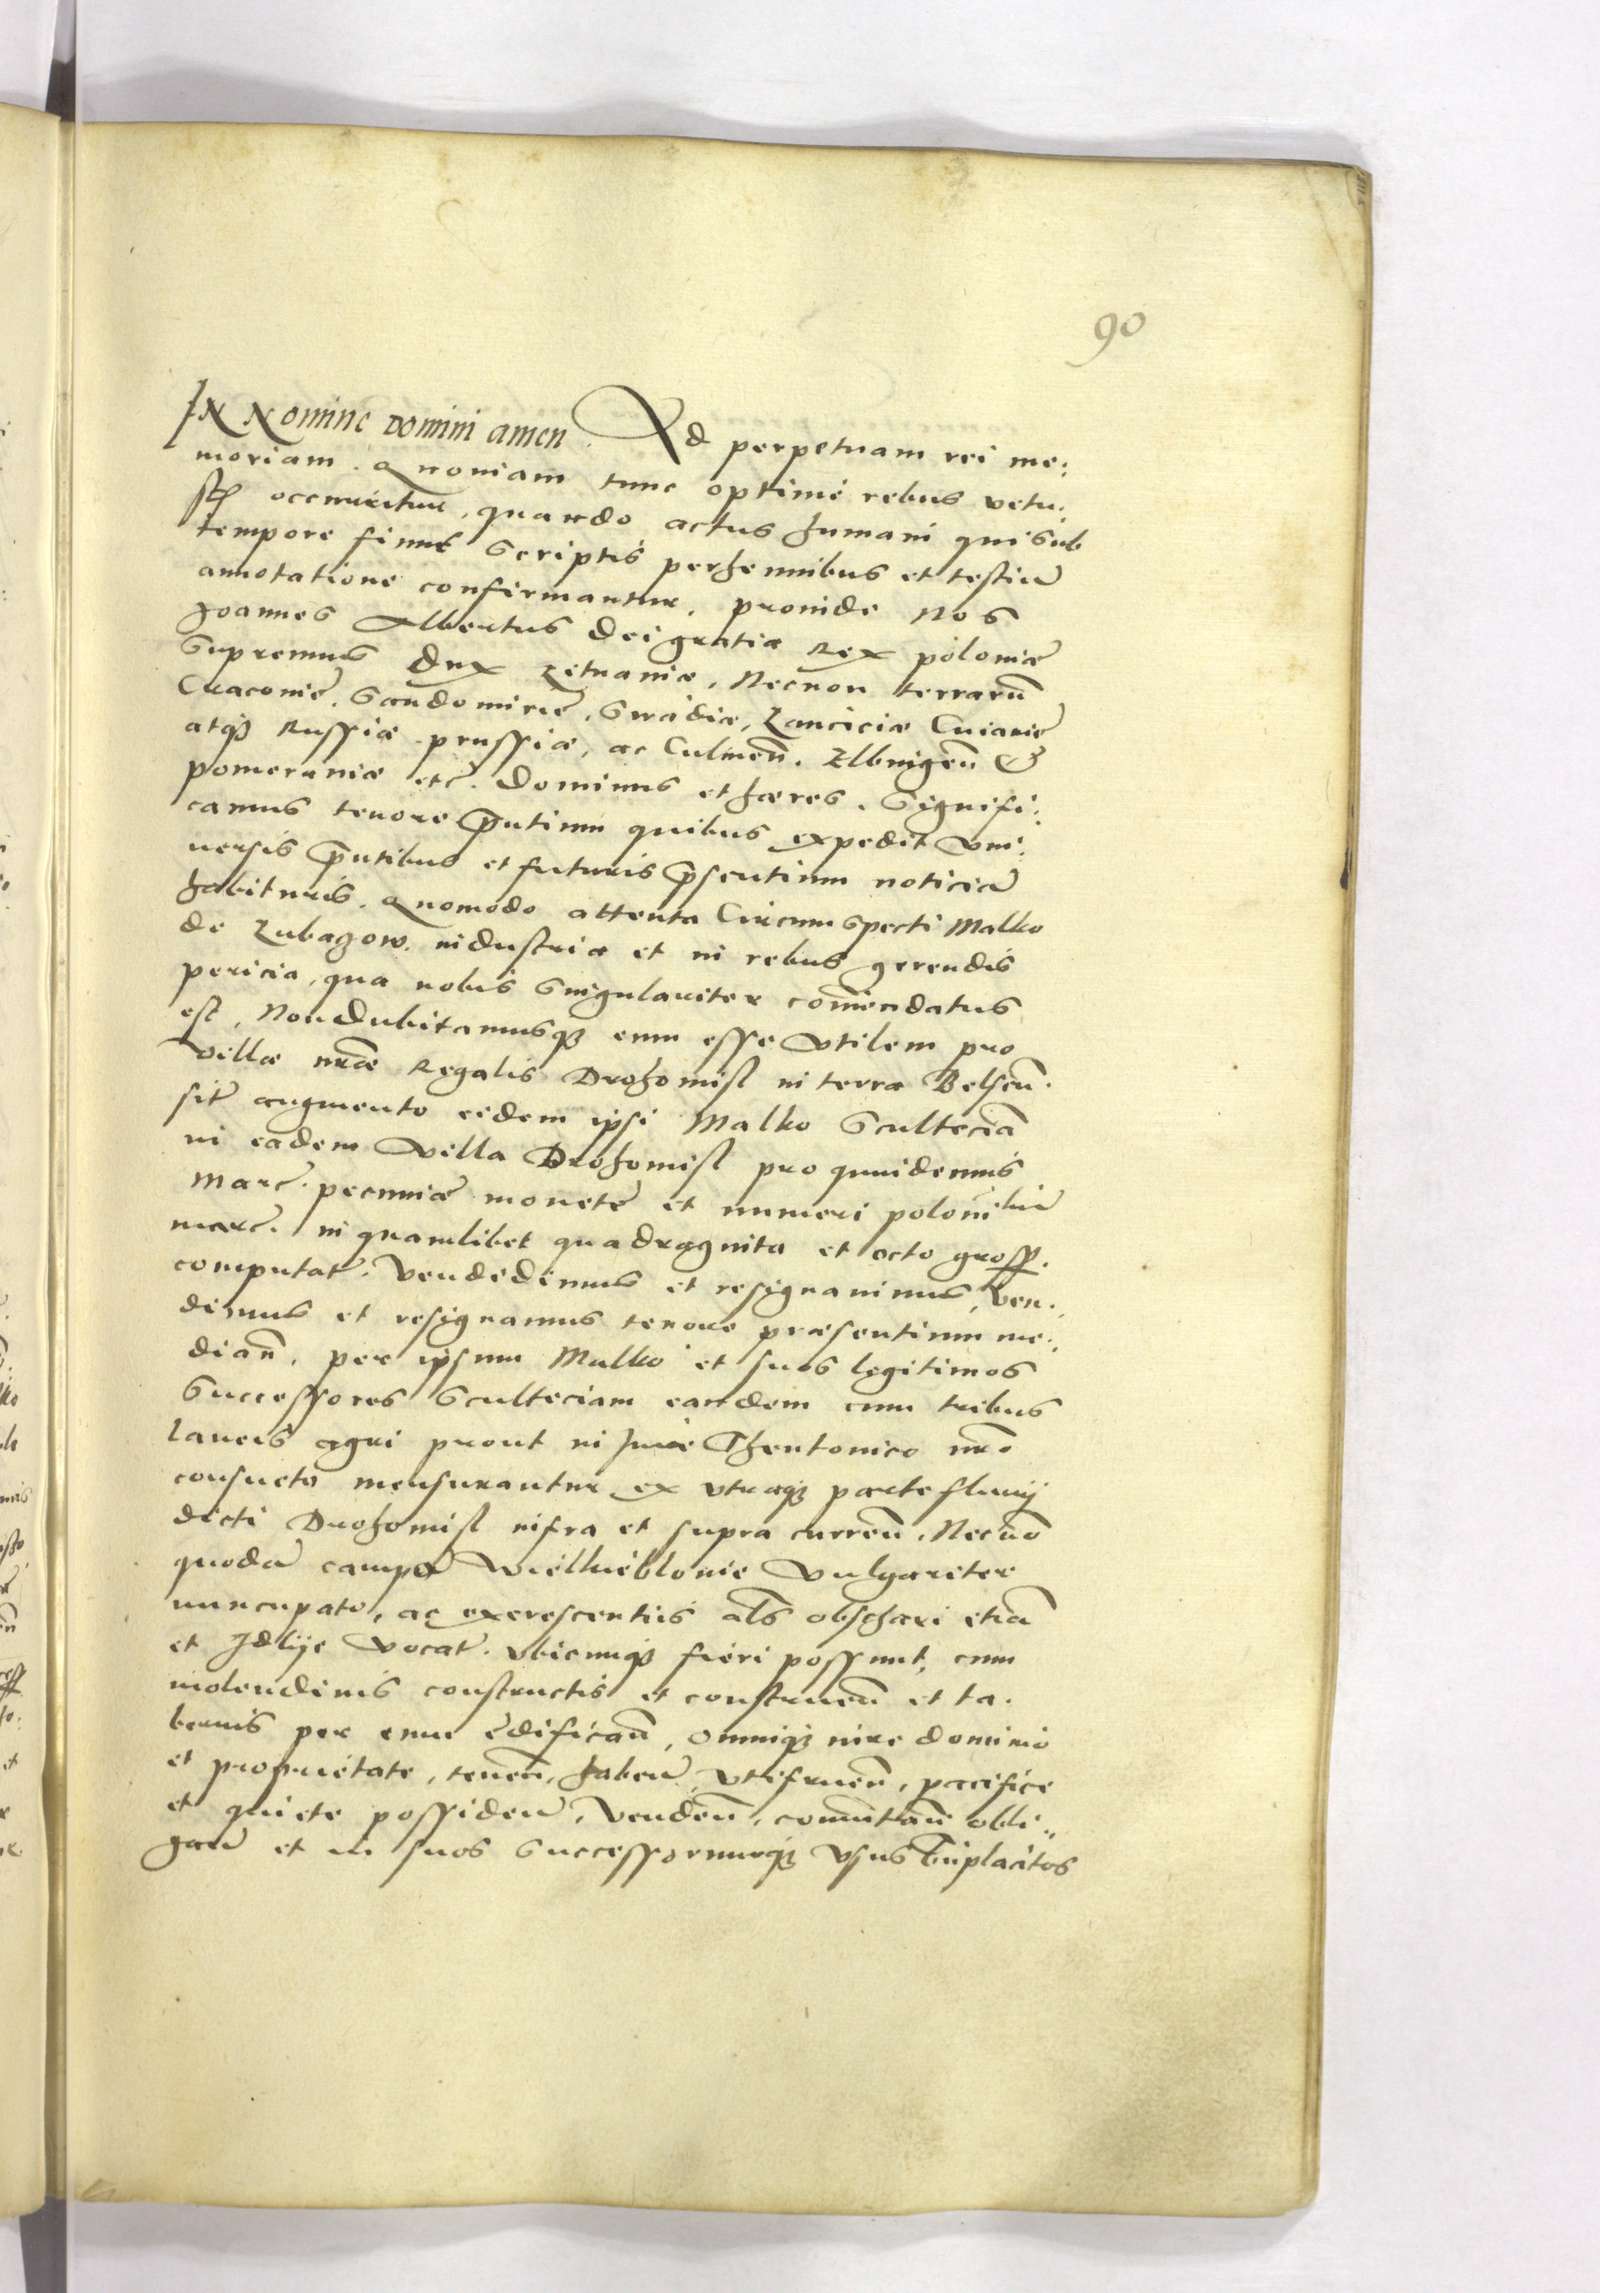 90
IN Nomine Domini amen. Ad perpetuam rei me:
moriam. Quoniam tunc optime rebus vetu:
occurritur, quando actus humani qui sub
tempore fiunt scriptis perhennibus et testiũ
annotatione confirmantur. proinde Nos
Joannes Albertus dei gratia Rex poloniæ
Supremus dux Lituaniæ, Necnon terrarũ
Cracoviẽ, Sandomiriẽ, Siradiæ, Lanciciæ Cuiaviẽ
atq3 Russiæ prussiæ, ac Culmeñ. Elbingeñ &
pomeraniæ etc̃. Dominus et hæres. Signifi:
camus tenore p̃ntium quibus expedit vni:
uersis p̃ntibus et futuris p̃sentium noticiã
habituris. Quomodo attenta Circumspecti Malko
de Lubazow. industria et in rebus gerendis
pericia, qua nobis singulariter com̃endatus
est, Non dubitamusq3 eum esse vtilem pro
villæ nr̃æ Regalis Drohomisl in terra Belseñ.
sit augmento eidem ipsi Malko Sculteciã
in eadem villa Drohomisl pro quindemis
Marc̃. pecuniæ monetẽ et numeri polonĩlũ
marc̃. in quamlibet quadraginta et octo gross.
computat̃. Vendidimus et resignauimus, Ven:
dimus et resignamus tenore præsentium me:
diañ. per ipsum Malko et suos legitimos
Successores Scultetiam eandem cum tribus
laneis agri prout in Jure Theutonico nr̃o
consueto mensurantur ex vtraq3 parte fluuij
dicti Drohomisl infra et supra curreñ. Necnõ
quodã campo Wielkiebłonie Vulgariter
nuncupato, ac excrescentiis als̃ obschari etiã
et Jdlije vocat̃. vbicunq3 fieri possunt, cum
molendinis constructis et construeñ et ta.
bernis per eum ẽdificañ, omniq3 iure dominio
et proprietate, teneñ, habeñ, vtifrueñ, pacifice
et quiete possideñ, Vendeñ, com̃utañ obli:
gañ et in suos Successorumq3 vsus bñplacitos